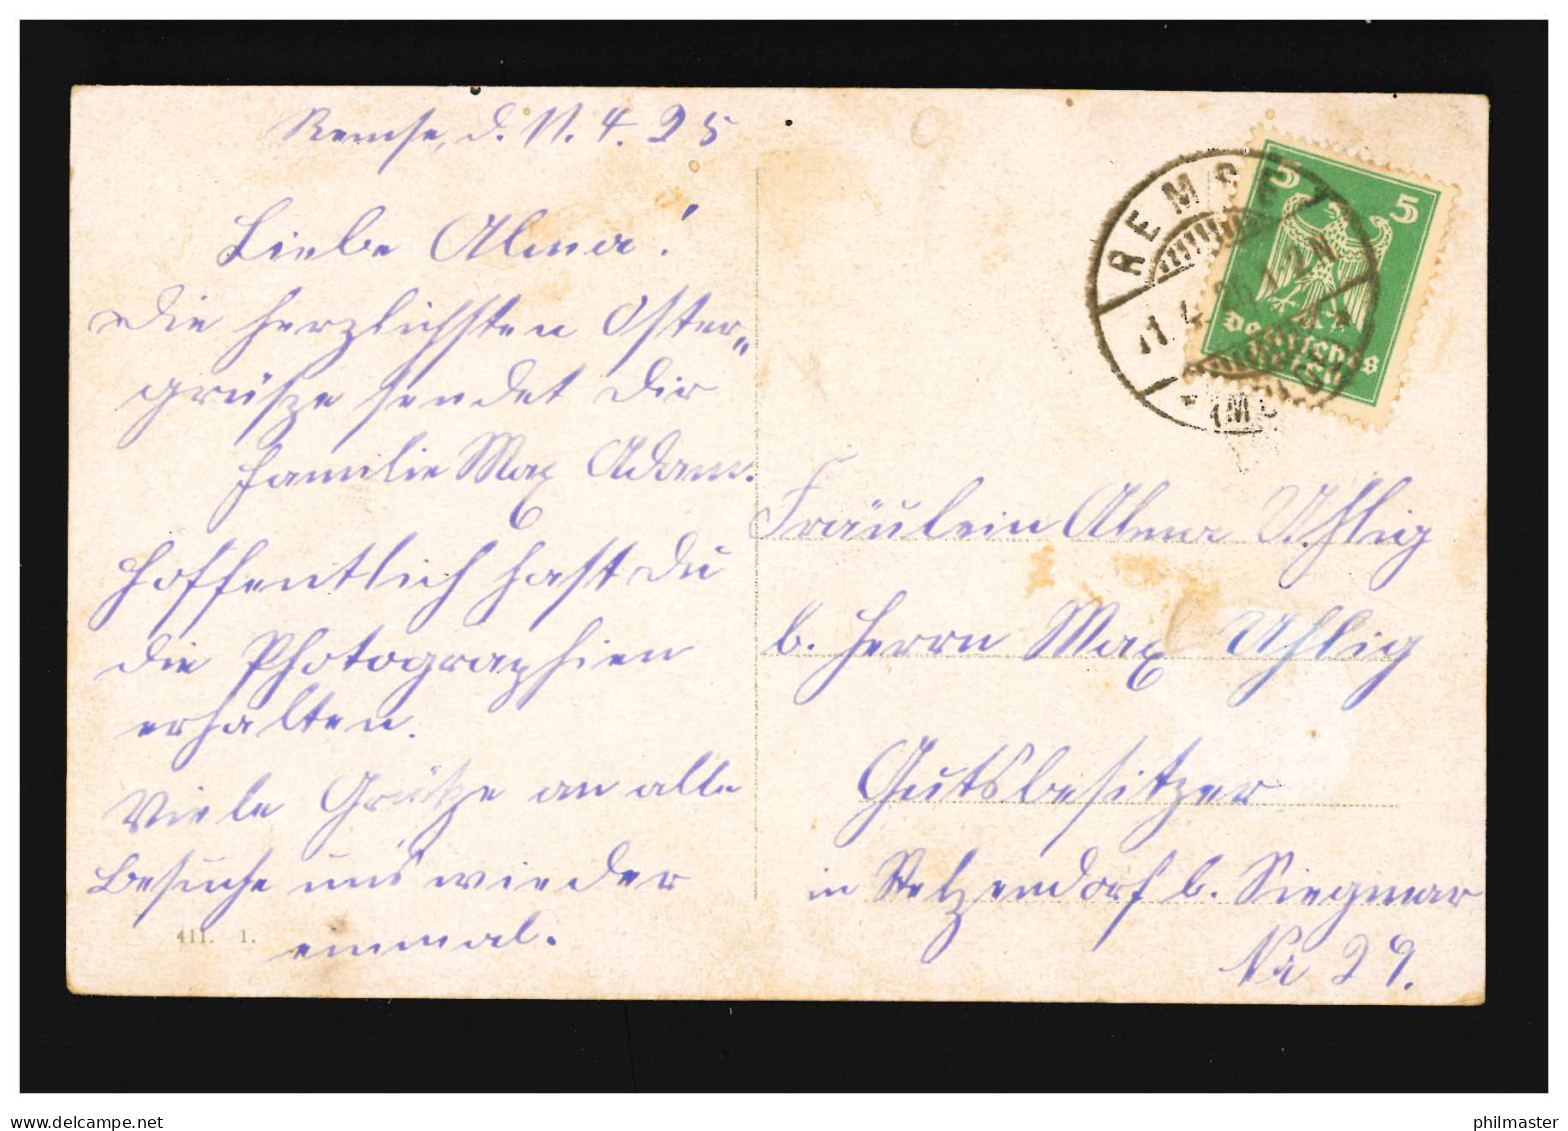 Remse, d. 11. 4. 25
Liebe Alma!
Die herzlichsten Oster-
grüße sendet Dir
Familie Max Adam.
Hoffentlich hast Du
die Photographien
erhalten.
Viele Grüße an alle
Besuche uns wieder
einmal.
411. 1.
REMSE
5 5
Deutsches Reich
Fräulein Alma Uhlig
b. Herrn Max Uhlig
Gutsbesitzer
in Stelzendorf b. Siegmar
No 29.
www.delcampe.net
philmaster